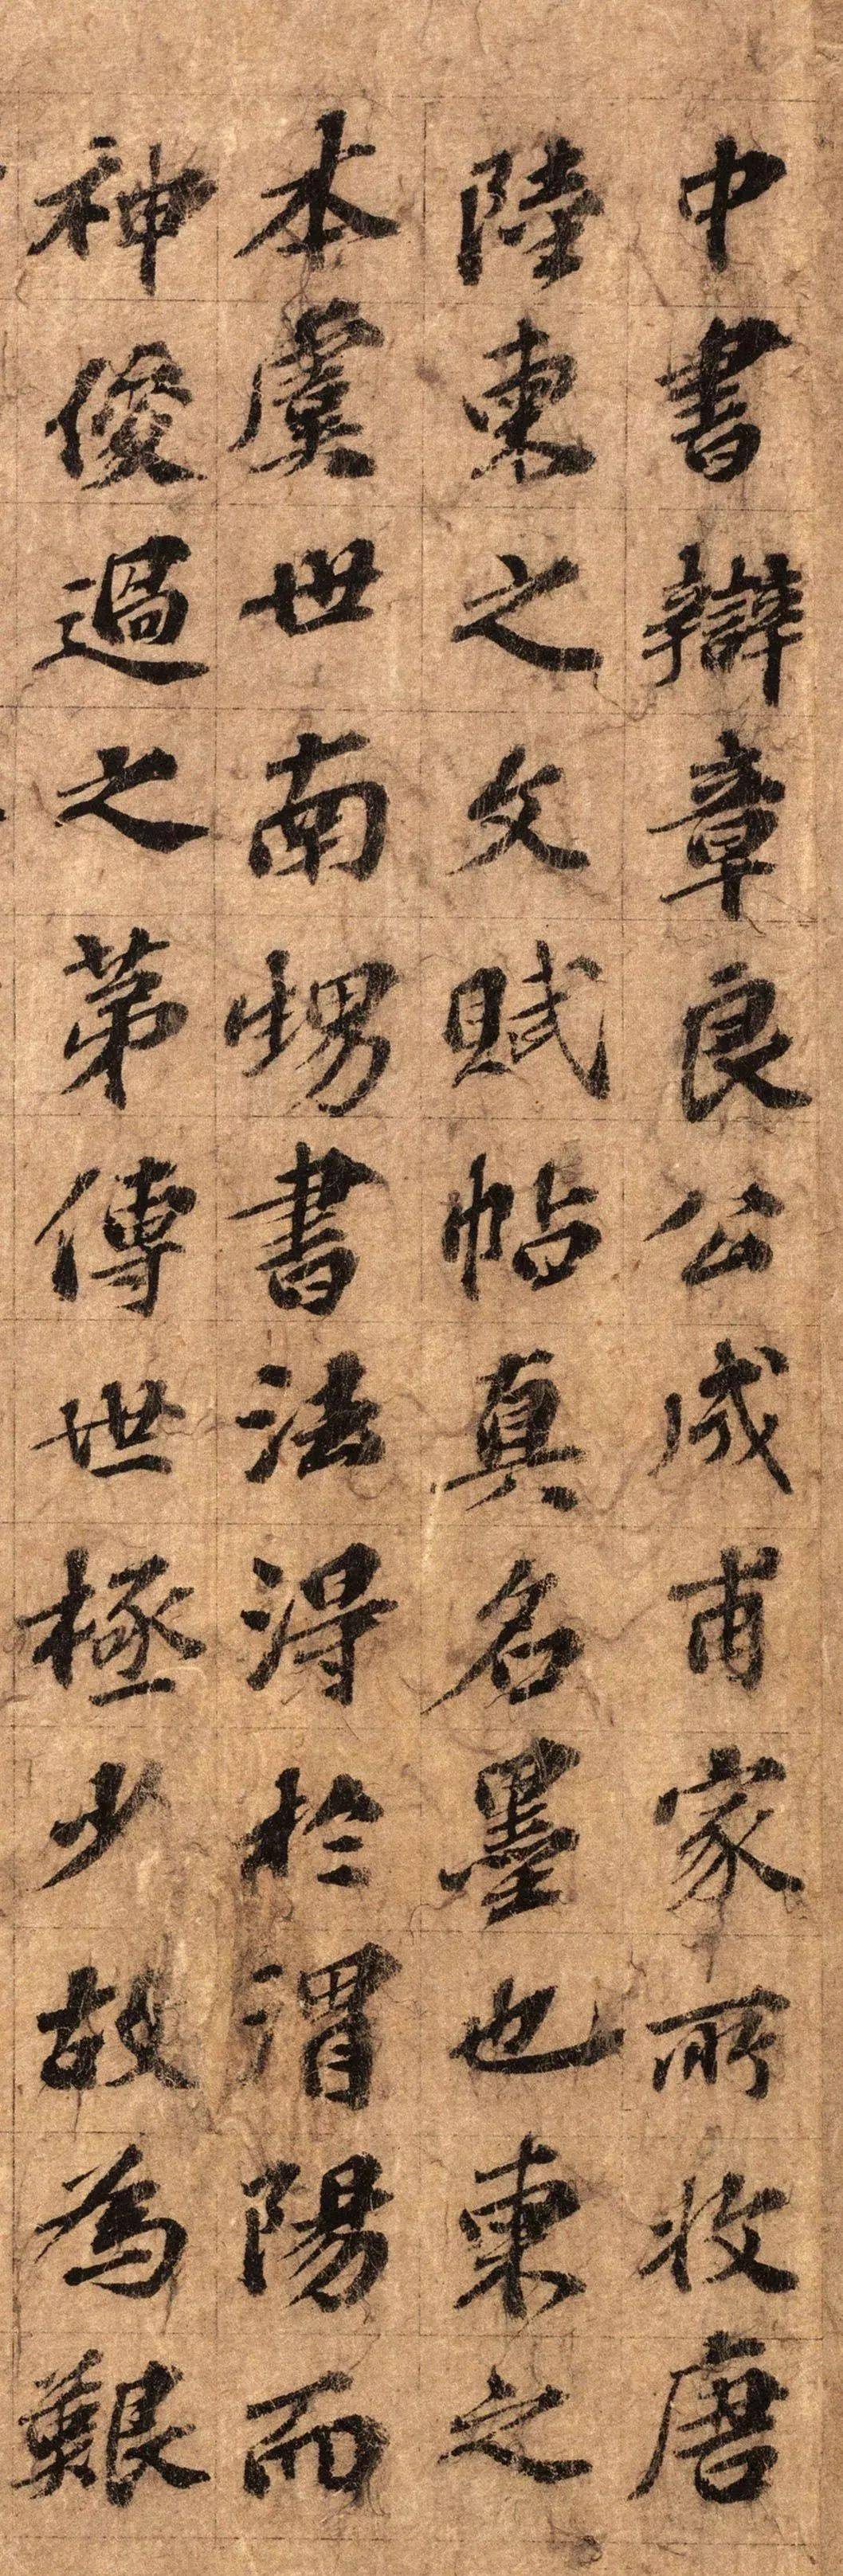 中書辯章良公成甫家所收唐
陸柬之文賦帖真名墨也柬之
本虞世南甥書法得於渭陽而
神俊過之苐傳世極少故為艱